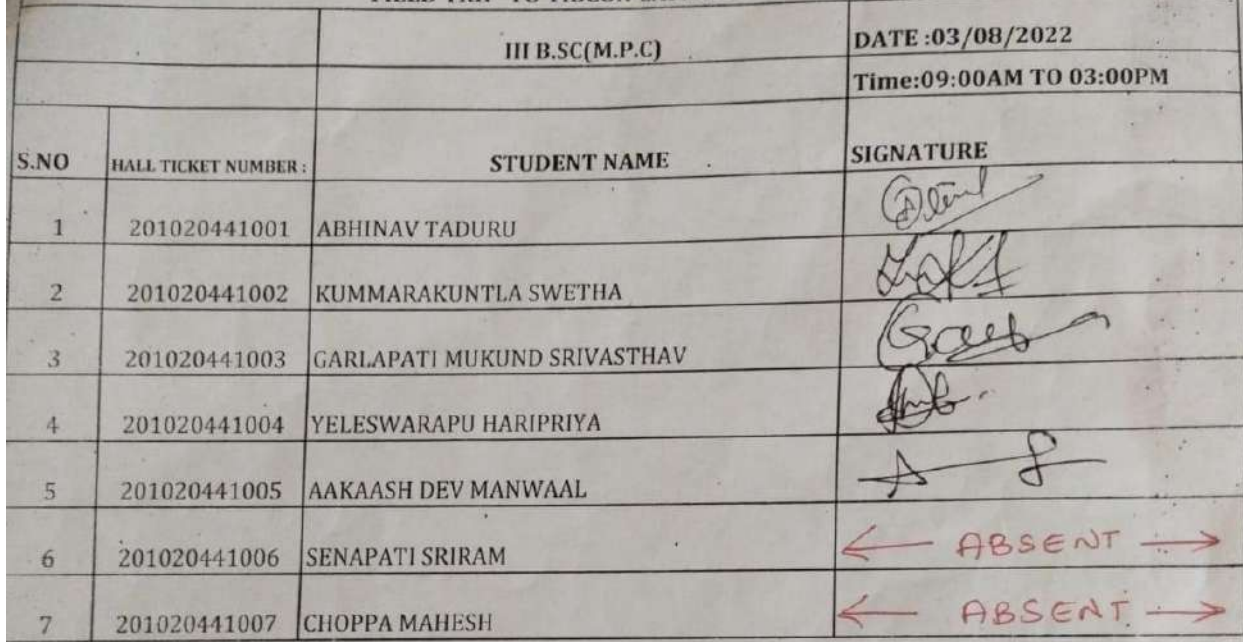 III B.SC(M.P.C) DATE :03/08/2022
Time:09:00AM TO 03:00PM
S.NO HALL TICKET NUMBER : STUDENT NAME SIGNATURE
1 201020441001 ABHINAV TADURU
2 201020441002 KUMMARAKUNTLA SWETHA
3 201020441003 GARLAPATI MUKUND SRIVASTHAV
4 201020441004 YELESWARAPU HARIPRIYA
5 201020441005 AAKAASH DEV MANWAAL
6 201020441006 SENAPATI SRIRAM ABSENT
7 201020441007 CHOPPA MAHESH ABSENT